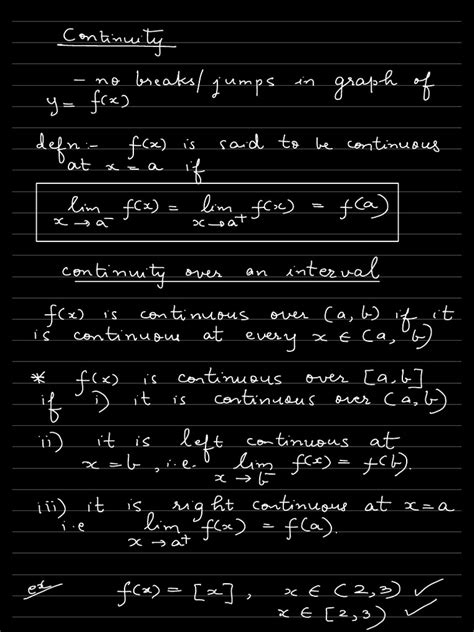 Continuity
- no breaks/jumps in graph of
y = f(x)
defn:- f(x) is said to be continuous
at x = a if
lim f(x) = lim f(x) = f(a)
x → a⁻ x → a⁺
continuity over an interval
f(x) is continuous over (a, b) if it
is continuous at every x ∈ (a, b)
* f(x) is continuous over [a, b]
if i) it is continuous over (a, b)
ii) it is left continuous at
x = b, i.e. lim f(x) = f(b).
x → b⁻
iii) it is right continuous at x = a
i.e lim f(x) = f(a).
x → a⁺
ex f(x) = [x], x ∈ (2, 3) ✓
x ∈ [2, 3) ✓